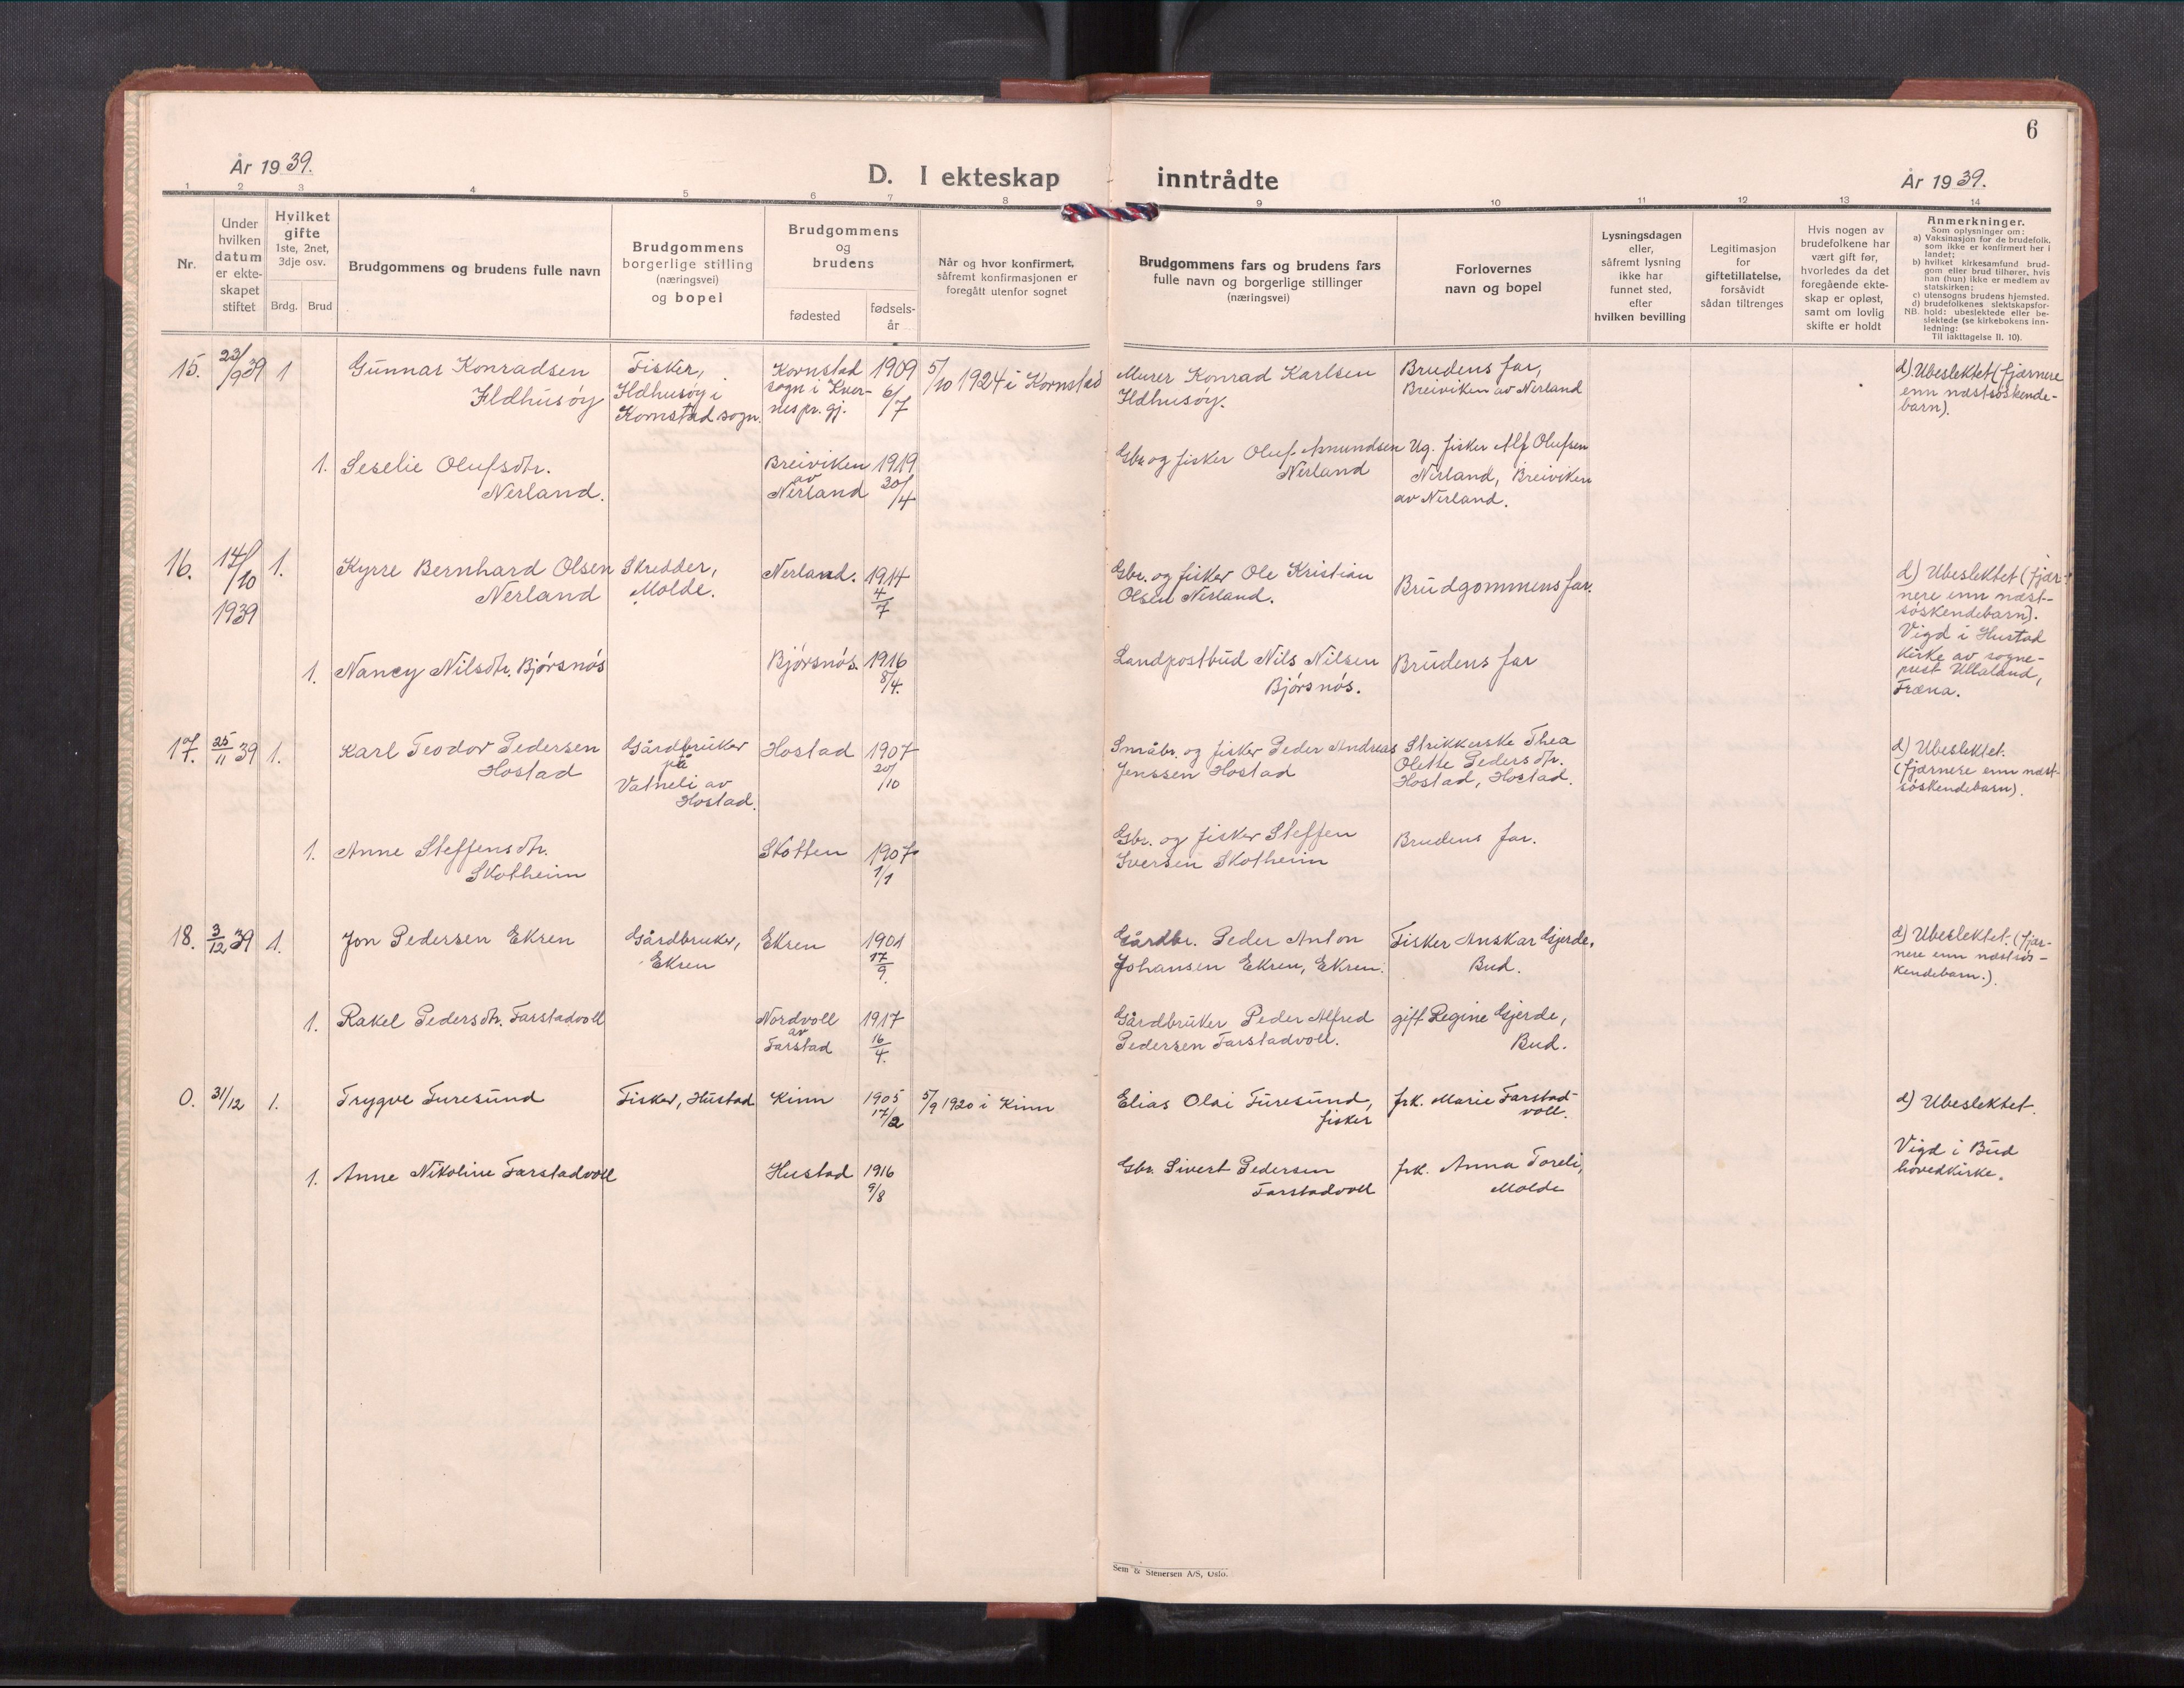 6
År 1939.
D. I ekteskap inntrådte
År 1939.
1 2 3 4 5 6 7 8 9 10 11 12 13 14
Nr.
Under
hvilken
datum
er ekte-
skapet
stiftet
Hvilket
gifte
1ste, 2net,
3dje osv.
Brdg. Brud
Brudgommens og brudens fulle navn
Brudgommens
borgerlige stilling
(næringsvei)
og bopel
Brudgommens
og
brudens
fødested
fødsels-
år
Når og hvor konfirmert,
såfremt konfirmasjonen er
foregått utenfor sognet
Brudgommens fars og brudens fars
fulle navn og borgerlige stillinger
(næringsvei)
Forlovernes
navn og bopel
Lysningsdagen
eller,
såfremt lysning
ikke har
funnet sted,
efter
hvilken bevilling
Legitimasjon
for
giftetillatelse,
forsåvidt
sådan tiltrenges
Hvis nogen av
brudefolkene har
vært gift før,
hvorledes da det
foregående ekte-
skap er opløst,
samt om lovlig
skifte er holdt
Anmerkninger.
Som oplysninger om:
a) Vaksinasjon for de brudefolk,
som ikke er konfirmert her i
landet;
b) hvilket kirkesamfund brud-
gom eller brud tilhører, hvis
han (hun) ikke er medlem av
statskirken;
c) utensogns brudens hjemsted.
d) brudefolkenes slektskapsfor-
NB. hold: ubeslektede eller be-
slektede (se kirkebokens inn-
ledning:
Til iakttagelse II. 10).
15. 23/9 39 1 Gunnar Konradsen
Ildhusøy
Fisker,
Ildhusøy i
Kornstad sogn.
Kornstad
sogn i Kver-
nes pr. gj.
1909
6/7
5/10 1924 i Kornstad
Murer Konrad Karlsen
Ildhusøy.
Brudens far,
Breiviken av Nerland
d) Ubeslektet (fjærnere
enn næstsøskende-
barn).
1. Seselie Olufsdtr.
Nerland.
Breiviken
av
Nerland
1919
30/4
Gbr. og fisker Oluf Amundsen
Nerland
Ug. fisker Alf Olufsen
Nerland, Breiviken
av Nerland.
16. 14/10
1939
1. Kyrre Bernhard Olsen
Nerland
Skredder,
Molde.
Nerland. 1914
4/7
Gbr. og fisker Ole Kristian
Olsen Nerland.
Brudgommens far.
d) Ubeslektet (fjær-
nere enn næst-
søskendebarn).
Vigd i Hustad
kirke av sogne-
prest Ullaland,
Fræna.
1. Nancy Nilsdtr. Bjørsnøs
Bjørsnøs. 1916
8/4.
Landpostbud Nils Nilsen
Bjørsnøs.
Brudens far
17. 25/11 39 1. Karl Teodor Pedersen
Hostad
Gårdbruker
på
Vatneli av
Hostad.
Hostad 1907
20/10
Småbr. og fisker Peder Andreas
Jenssen Hostad
Strikkerske Thea
Olette Pedersdtr.
Hostad, Hostad.
d) Ubeslektet.
(fjærnere enn næst-
søskendebarn).
1. Anne Steffensdtr.
Skotheim
Skotten 1907
1/1
Gbr. og fisker Steffen
Iversen Skotheim
Brudens far.
18. 3/12 39 1. Jon Pedersen Ekren
Gårdbruker,
Ekren
Ekren 1901
17/9.
Gårdbr. Peder Anton
Johansen Ekren, Ekren.
Fisker Anskar Gjerde,
Bud.
d) Ubeslektet. (fjær-
nere enn næstsøs-
kendebarn.)
1. Rakel Pedersdtr. Farstadvoll
Nordvoll
av
Farstad
1917
16/4.
Gårdbruker Peder Alfred
Pedersen Farstadvoll.
gift Regine Gjerde,
Bud.
0. 31/12 1. Trygve Furesund
Fisker, Hustad
Kinn 1905
17/2
5/9 1920 i Kinn
Elias Olai Furesund,
fisker
frk. Marie Farstad-
voll.
d) Ubeslektet.
Vigd i Bud
hovedkirke.
1. Anne Nikoline Farstadvoll
Hustad 1916
9/8
Gbr. Sivert Pedersen
Farstadvoll
frk. Anna Toreli,
Molde
Sem & Stenersen A/S, Oslo.